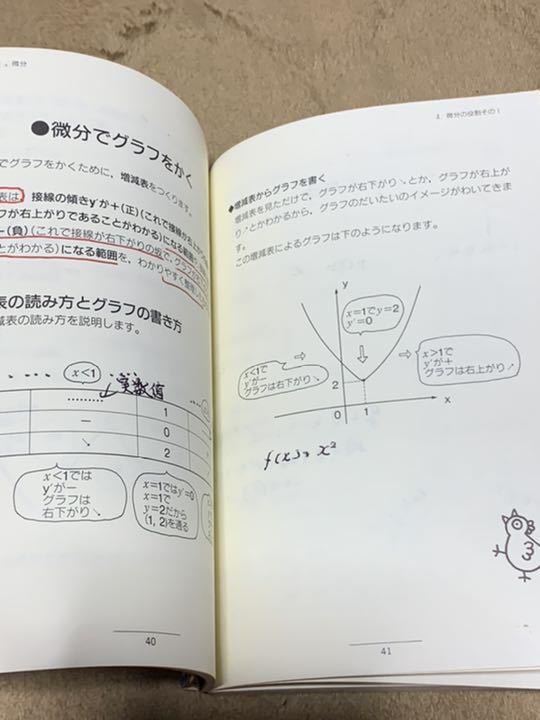 微分
●微分でグラフをかく
でグラフをかくために，増減表をつくります。
表は，接線の傾きy′が＋(正)(これで接線が右上がり
フが右上がりであることがわかる)になる範囲
－(負)(これで接線が右下がりの坂で，グラフが
とがわかる)になる範囲を，わかりやすく整理
表の読み方とグラフの書き方
減表の読み方を説明します。
x<1
実数値
1
－
0
↘
2
x<1では
y′が－
グラフは
右下がり↘
x=1ではy′=0
x=1で
y=2だから
(1, 2)を通る
40
2. 微分の役割その1
◆増減表からグラフを書く
増減表を見ただけで，グラフが右下がり↘とか，グラフが右上が
り↗とかわかるから，グラフのだいたいのイメージがわいてきま
す。
この増減表によるグラフは下のようになります。
y
x=1でy=2
y′=0
x<1で
y′が－
グラフは右下がり↘
x>1で
y′が＋
グラフは右上がり↗
2
0
1
x
f(x)= x²
41